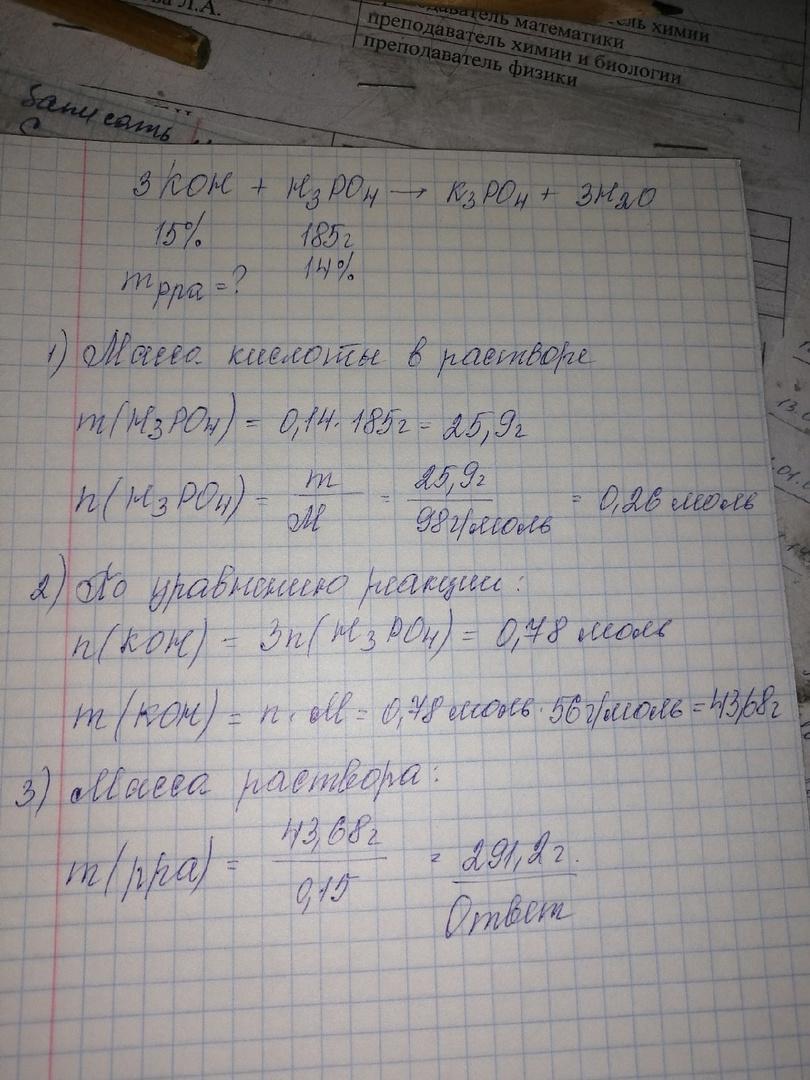 ва Л.А.
ель химии
преподаватель математики
преподаватель химии и биологии
преподаватель физики
Записать
3KOH + H3PO4 → K3PO4 + 3H2O
15% 185г
mрра = ? 14%
1) Масса кислоты в растворе
m(H3PO4) = 0,14 · 185г = 25,9г
n(H3PO4) = m/M = 25,9г/98г/моль = 0,26 моль
2) По уравнению реакции:
n(KOH) = 3n(H3PO4) = 0,78 моль
m(KOH) = n · M = 0,78 моль · 56г/моль = 43,68г
3) Масса раствора:
m(рра) = 43,68г/0,15 = 291,2г.
Ответ